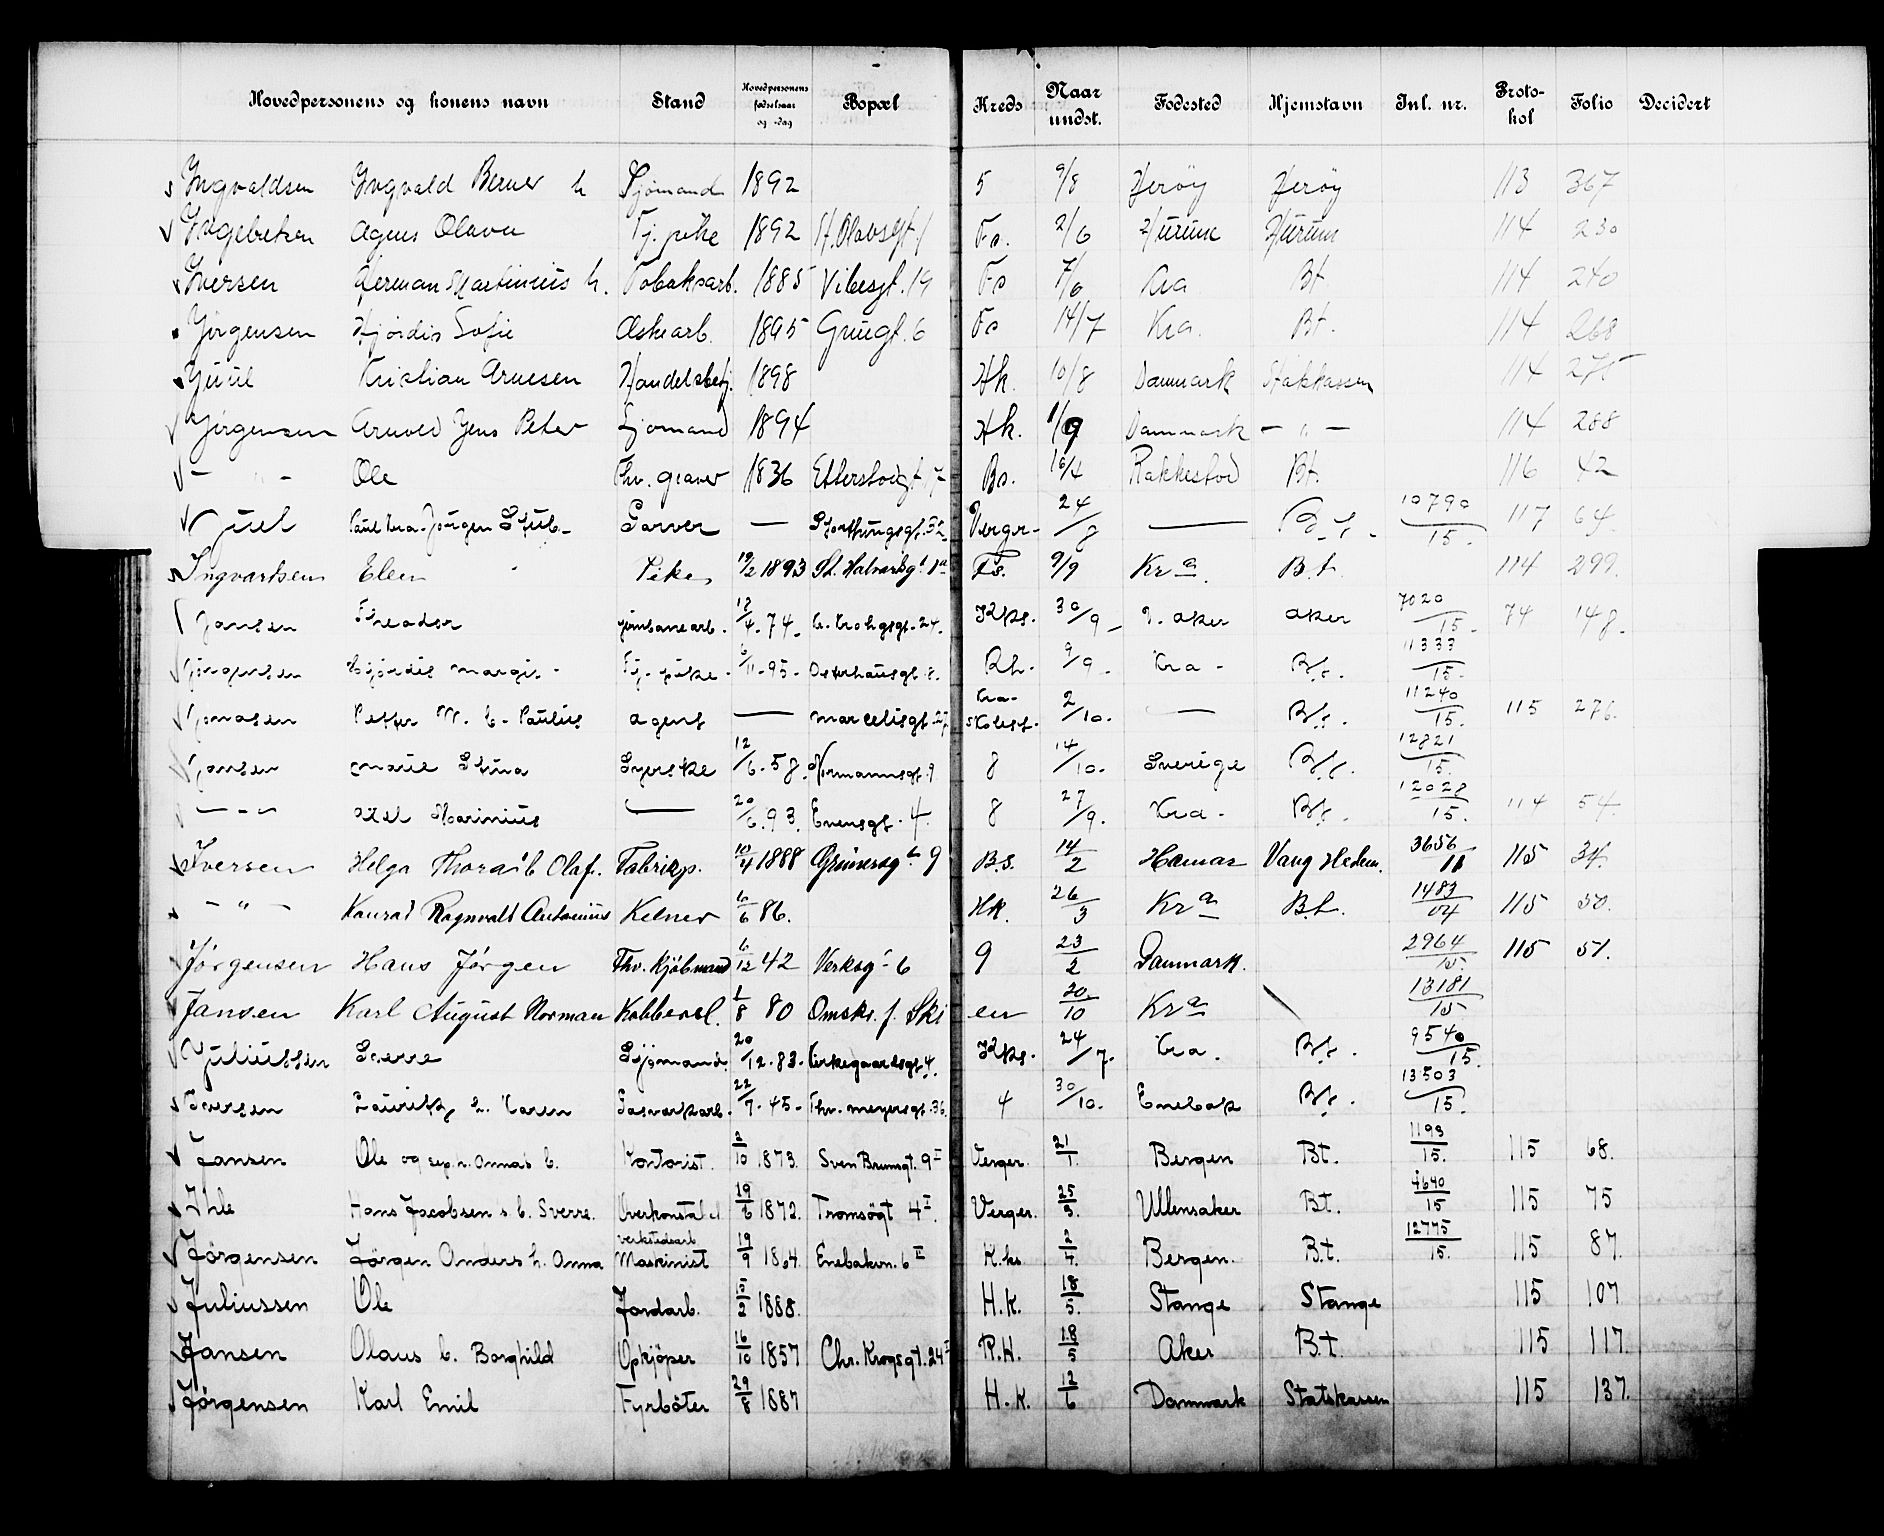 Hovedpersonens og konens navn Stand Hovedpersonens fødselsaar og -dag Bopæl Kreds Naar undst. Fødested Hjemstavn Inl. nr. Protokol Folio Decidert
Ingvaldsen Ingvald Berner h Sjømand 1892 5 9/8 Herøy Herøy 113 367
Ingebretsen Agnes Olava Tj. pike 1892 St. Olavsgt. 1 Fs. 2/6 Hurum Hurum 114 230
Iversen Herman Martinius h. Tobaksarb. 1885 Vibesgt. 19 Fs 7/6 Kra Bt. 114 240
Jørgensen Hjørdis Sofie Æskearb. 1895 Gruegt. 6 Fs 14/7 Kra. Bt. 114 268
Juul Kristian Arnesen Handelsbetj. 1898 Hk. 10/8 Danmark Statskassen 114 275
Jørgensen Arnold Jens Peter Sjømand 1894 Hk. 1/9 Danmark — " — 114 288
— " — Ole Fhv. graver 1836 Etterstadgt. 17 Bs. 16/4 Rakkestad Bt. 116 42
Juel Garver — Storthingsgt. 32 Verger. 24/8 — B.t. 10790/15. 117 64.
Ingvartsen Elen Pike 19/2 1893 St. Halvardsgt 1a Fs. 9/9 Kra. B.t. 114 299.
Jansen Theodor jernbanearb. 18/4. 74. C. Krohgsgt. 24. Kks. 30/9. V. aker aker 7020/15. 74 148.
Jørgensen Hjørdis Margit Tj. pike. 6/11. 95. Osterhausgt. 8. Rh. 9/9. Kra. B.t. 11333/15.
Jonasen Petter M. C. Paulus agent — Marcelisgt. 27. Kra. Skolest. 2/10. — B.t. 11240/15. 115 276.
Jansen Marie Stina Syerske 12/6. 58. Normannsgt. 9 8 14/10. Sverige B.t. 12821/15.
— " — Axel Marinius — 20/6. 93. Enensgt. 4. 8 27/9. Kra. B.t. 12028/15. 114 54.
Iversen Helga Thora f. Olafs. Fabrikp. 10/4 1888 Grünersgt 9 B.S. 14/2 Hamar Vang Hedem. 3656/11 115 34.
— " — Konrad Ragnvald Antonius Kelner 6/6 86. HK. 26/3 Kra B.t. 1483/04 115 50.
Jørgensen Hans Jørgen Fhv. Kjøbmand 6/12 42 Verksgt 6 9 23/2 Danmark. 2964/15. 115 51.
Jansen Karl August Norman Kobbersl. 1/8 80 Omsks. f. Skien 20/10 Kra 13181/15
Juliussen Sverre Sjømand. 20/12. 83. Kirkegaardsgt. 4. Kks. 24/7. Kra. B.t. 9540/15.
Iversen Lauritz h. Karen Gasverksarb. 22/7. 45. Thv. Meyersgt. 36. 4 30/10. Enebak B.t. 13503/15.
Jansen Ole og sep. h. Annas b. Kontorist. 2/10 1873. Sven Brunsgt. 9 I Verger. 21/1. Bergen Bt. 1193/15. 115 68.
Ihle Hans Jacobsen s. b. Sverre. Overkonstabel 19/6 1872. Tromsøgt 4 I. Verger. 25/3. Ullensaker Bt. 4640/15 115 75
Jørgensen Jørgen Anders h. Anna verkstedsarb Maskinist 19/9 1864. Enebakvn. 6 II K.ks. 2/4. Bergen. B.t. 12775/15. 115 87.
Juliussen Ole Jordarb. 15/2 1888. H.K. 18/5. Stange Stange 115 107
Jansen Olaus b. Borghild Opkjøper 16/10 1857 Chr. Krogsgt. 24 I R.H. 18/5 Aker B.t. 115 117.
Jørgensen Karl Emil Fyrbøter 29/8 1887 H.K. 12/6 Danmark Statskassen 115 137.